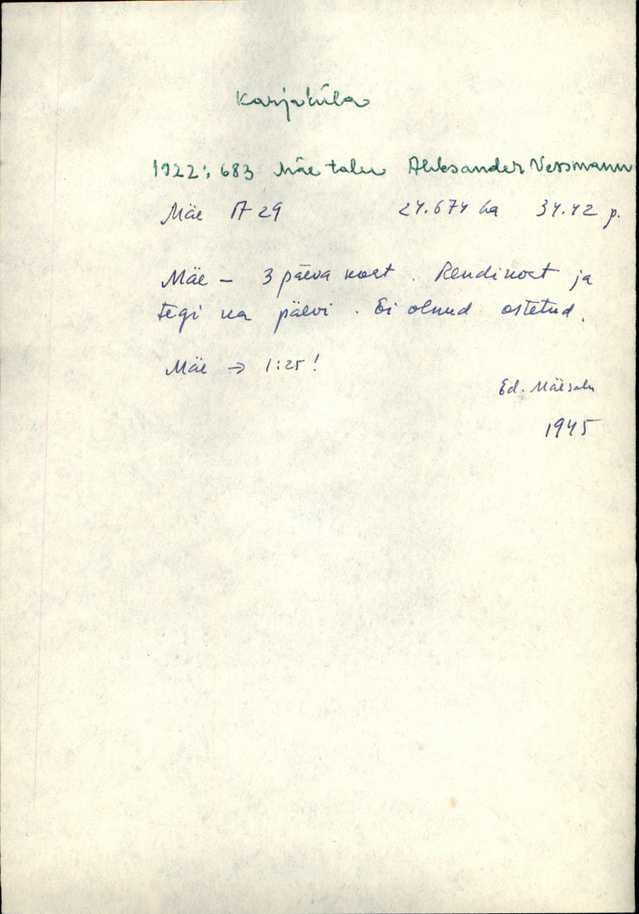 Karjaküla
1922: 683 Mäe talu Aleksander Vessmann
Mäe A 29 24.674 ha 34.42 p.
Mäe – 3 päeva koht. Rendikoht ja
tegi ka päevi. Ei olnud ostetud.
Mäe → 1:25!
Ed. Mäesalu
1945